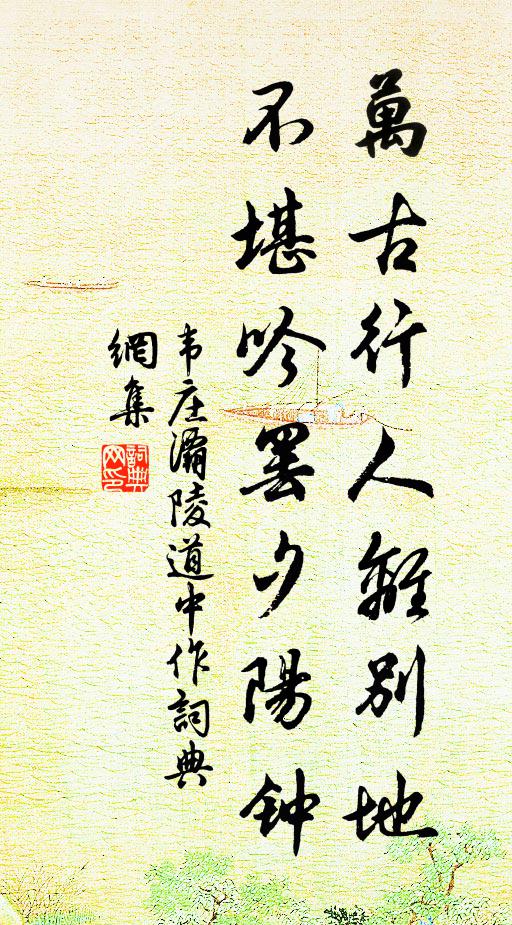 萬古行人離別地
不堪吟罷夕陽钟
韦庄灞陵道中作詞典
網集
詞典
网印